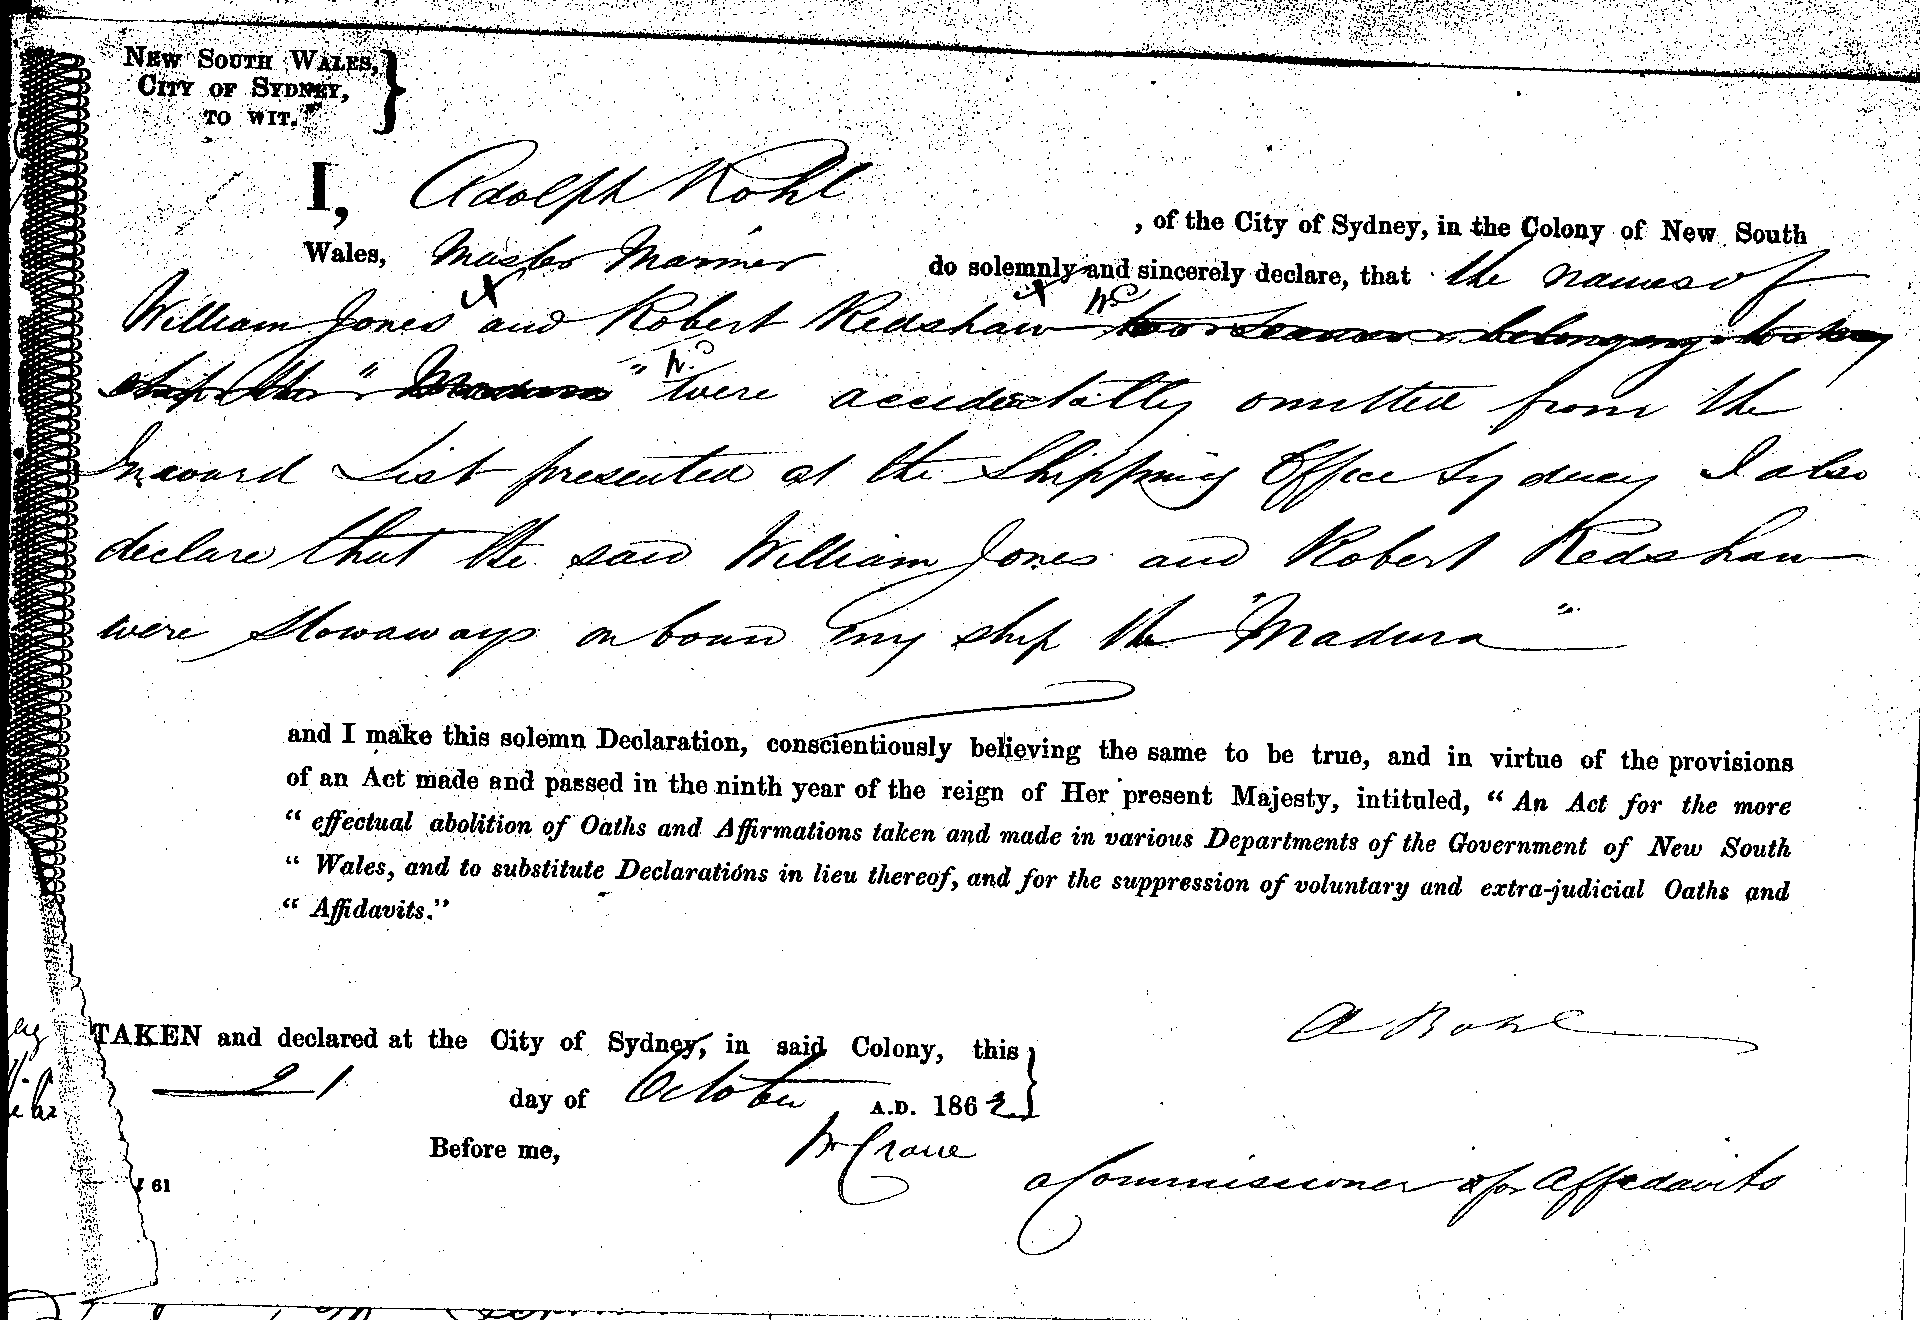 NEW SOUTH WALES,
CITY OF SYDNEY,
TO WIT.
I, Adolph Kohl , of the City of Sydney, in the Colony of New South
Wales, Master Mariner do solemnly and sincerely declare, that the names of
William Jones x and Robert Redshaw x two Seamen belonging to my
ship the "Madura" were accidentally omitted from the
Inward List presented at the Shipping Office Sydney I also
declare that the said William Jones and Robert Redshaw
were Stowaways on board my ship the "Madura"
and I make this solemn Declaration, conscientiously believing the same to be true, and in virtue of the provisions
of an Act made and passed in the ninth year of the reign of Her present Majesty, intituled, “ An Act for the more
“ effectual abolition of Oaths and Affirmations taken and made in various Departments of the Government of New South
“ Wales, and to substitute Declarations in lieu thereof, and for the suppression of voluntary and extra-judicial Oaths and
“ Affidavits.”
A Kohl
TAKEN and declared at the City of Sydney, in said Colony, this
21 day of October A.D. 1862
Before me, Crane
Commissioner for Affidavits
61